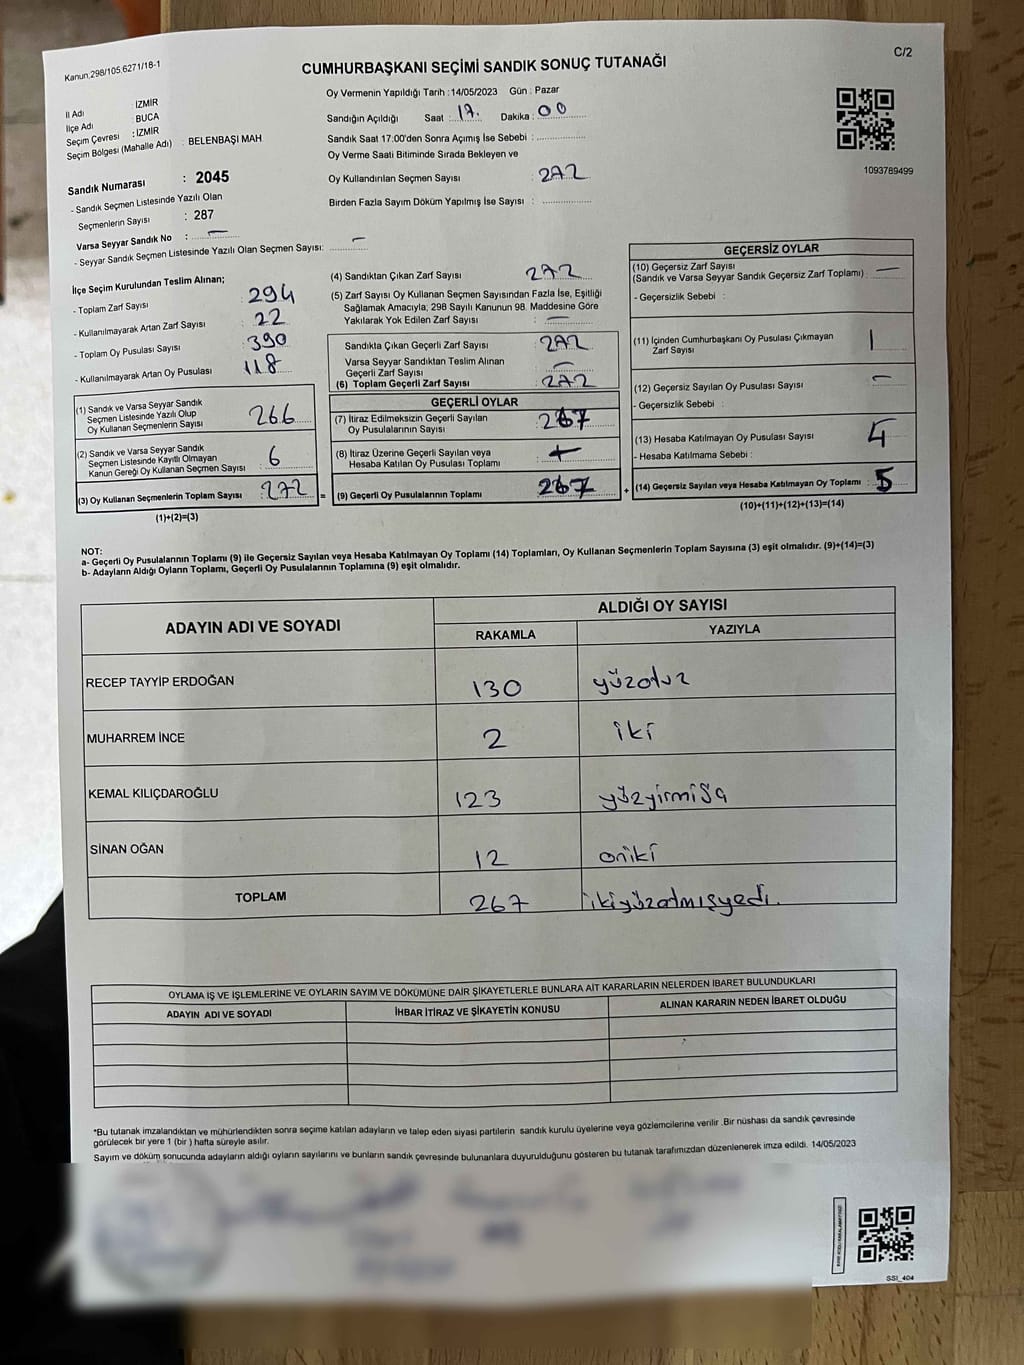 Kanun:298/105,6271/18-1
C/2
CUMHURBAŞKANI SEÇİMİ SANDIK SONUÇ TUTANAĞI
İl Adı : İZMİR
İlçe Adı : BUCA
Seçim Çevresi : İZMİR
Seçim Bölgesi (Mahalle Adı) : BELENBAŞI MAH
Oy Vermenin Yapıldığı Tarih :14/05/2023 Gün : Pazar
Sandığın Açıldığı Saat : 17. Dakika : 00
Sandık Saat 17:00'den Sonra Açımış İse Sebebi :
Oy Verme Saati Bitiminde Sırada Bekleyen ve
Oy Kullandırılan Seçmen Sayısı : 272
Birden Fazla Sayım Döküm Yapılmış İse Sayısı :
1093789499
Sandık Numarası : 2045
- Sandık Seçmen Listesinde Yazılı Olan
Seçmenlerin Sayısı : 287
Varsa Seyyar Sandık No : —
- Seyyar Sandık Seçmen Listesinde Yazılı Olan Seçmen Sayısı: —
İlçe Seçim Kurulundan Teslim Alınan;
- Toplam Zarf Sayısı : 294
- Kullanılmayarak Artan Zarf Sayısı : 22
- Toplam Oy Pusulası Sayısı : 390
- Kullanılmayarak Artan Oy Pusulası : 118
(1) Sandık ve Varsa Seyyar Sandık
Seçmen Listesinde Yazılı Olup
Oy Kullanan Seçmenlerin Sayısı : 266
(2) Sandık ve Varsa Seyyar Sandık
Seçmen Listesinde Kayıtlı Olmayan
Kanun Gereği Oy Kullanan Seçmen Sayısı : 6
(3) Oy Kullanan Seçmenlerin Toplam Sayısı : 272 =
(1)+(2)=(3)
(4) Sandıktan Çıkan Zarf Sayısı : 272
(5) Zarf Sayısı Oy Kullanan Seçmen Sayısından Fazla İse, Eşitliği
Sağlamak Amacıyla, 298 Sayılı Kanunun 98. Maddesine Göre
Yakılarak Yok Edilen Zarf Sayısı : —
Sandıkta Çıkan Geçerli Zarf Sayısı : 272
Varsa Seyyar Sandıktan Teslim Alınan
Geçerli Zarf Sayısı : —
(6) Toplam Geçerli Zarf Sayısı : 272
GEÇERLİ OYLAR
(7) İtiraz Edilmeksizin Geçerli Sayılan
Oy Pusulalarının Sayısı : 267
(8) İtiraz Üzerine Geçerli Sayılan veya
Hesaba Katılan Oy Pusulası Toplamı :
(9) Geçerli Oy Pusulalarının Toplamı : 267 +
GEÇERSİZ OYLAR
(10) Geçersiz Zarf Sayısı
(Sandık ve Varsa Seyyar Sandık Geçersiz Zarf Toplamı) : —
- Geçersizlik Sebebi :
(11) İçinden Cumhurbaşkanı Oy Pusulası Çıkmayan
Zarf Sayısı : 1
(12) Geçersiz Sayılan Oy Pusulası Sayısı : —
- Geçersizlik Sebebi :
(13) Hesaba Katılmayan Oy Pusulası Sayısı : 4
- Hesaba Katılmama Sebebi :
(14) Geçersiz Sayılan veya Hesaba Katılmayan Oy Toplamı : 5
(10)+(11)+(12)+(13)=(14)
NOT:
a- Geçerli Oy Pusulalarının Toplamı (9) ile Geçersiz Sayılan veya Hesaba Katılmayan Oy Toplamı (14) Toplamları, Oy Kullanan Seçmenlerin Toplam Sayısına (3) eşit olmalıdır. (9)+(14)=(3)
b- Adayların Aldığı Oyların Toplamı, Geçerli Oy Pusulalarının Toplamına (9) eşit olmalıdır.
ADAYIN ADI VE SOYADI ALDIĞI OY SAYISI
RAKAMLA YAZIYLA
RECEP TAYYİP ERDOĞAN 130 yüzotuz
MUHARREM İNCE 2 iki
KEMAL KILIÇDAROĞLU 123 yüzyirmi
SİNAN OĞAN 12 oniki
TOPLAM 267 ikiyüzatmışyedi.
OYLAMA İŞ VE İŞLEMLERİNE VE OYLARIN SAYIM VE DÖKÜMÜNE DAİR ŞİKAYETLERLE BUNLARA AİT KARARLARIN NELERDEN İBARET BULUNDUKLARI
ADAYIN ADI VE SOYADI İHBAR İTİRAZ VE ŞİKAYETİN KONUSU ALINAN KARARIN NEDEN İBARET OLDUĞU
*Bu tutanak imzalandıktan ve mühürlendikten sonra seçime katılan adayların ve talep eden siyasi partilerin sandık kurulu üyelerine veya gözlemcilerine verilir .Bir nüshası da sandık çevresinde
görülecek bir yere 1 (bir ) hafta süreyle asılır.
Sayım ve döküm sonucunda adayların aldığı oyların sayılarını ve bunların sandık çevresinde bulunanlara duyurulduğunu gösteren bu tutanak tarafımızdan düzenlenerek imza edildi. 14/05/2023
SSI_404